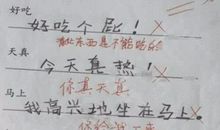 好吃
好吃个屁!
这些东西是不能吃的
天真
今天真热!
你真天真
马上
我高兴地坐在马上。